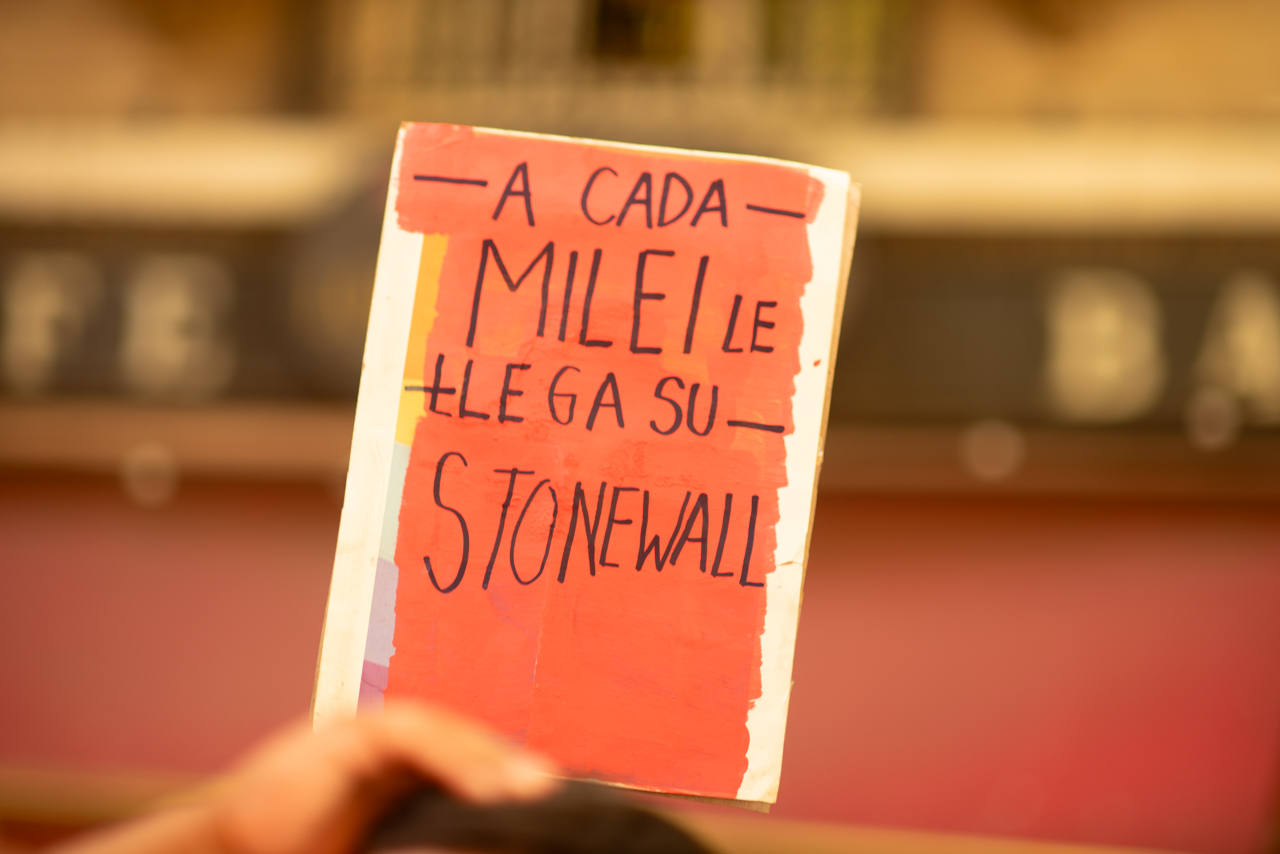 — A CADA —
MILEI LE
LLEGA SU —
STONEWALL